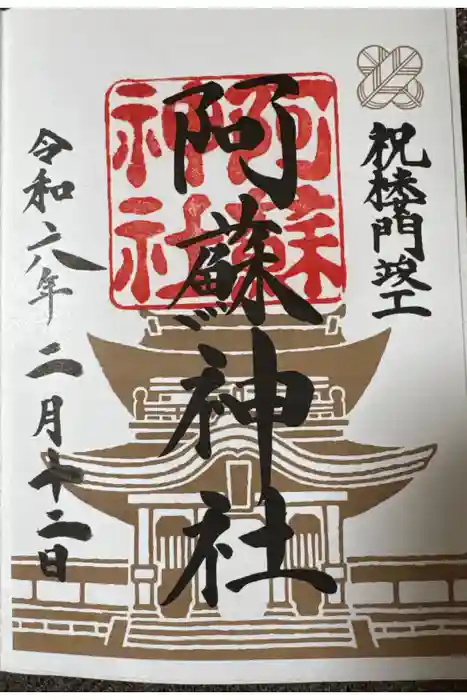 祝楼門竣工
阿蘇神社
阿蘇
神社
令和六年二月十二日